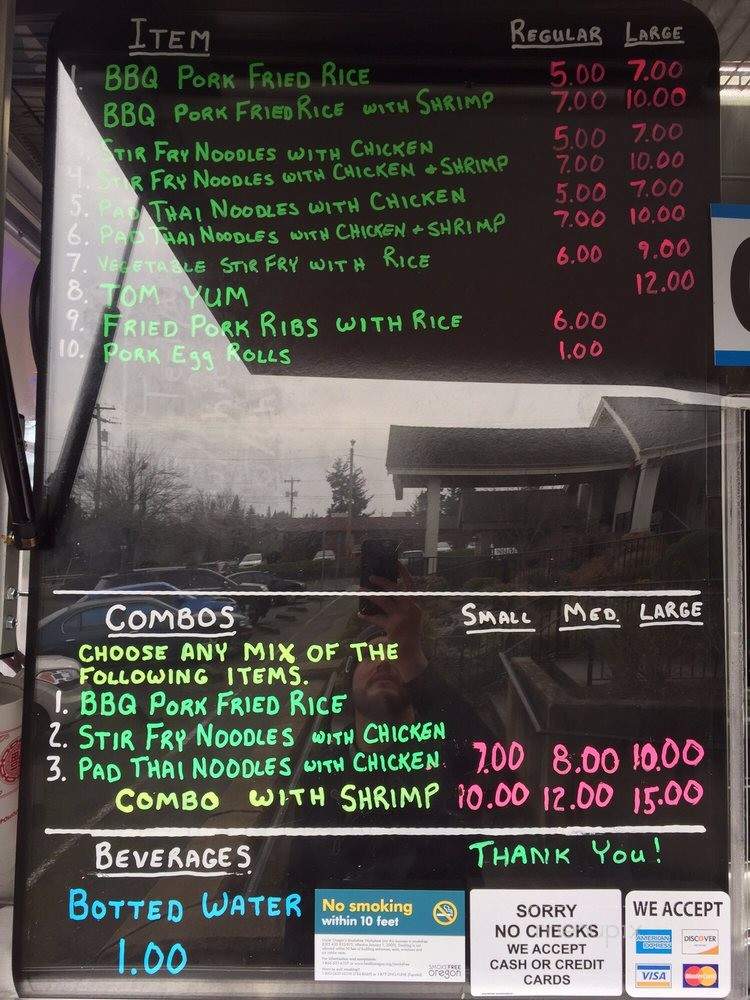 ITEM REGULAR LARGE
1. BBQ PORK FRIED RICE 5.00 7.00
BBQ PORK FRIED RICE WITH SHRIMP 7.00 10.00
STIR FRY NOODLES WITH CHICKEN 5.00 7.00
4. STIR FRY NOODLES WITH CHICKEN + SHRIMP 7.00 10.00
5. PAD THAI NOODLES WITH CHICKEN 5.00 7.00
6. PAD THAI NOODLES WITH CHICKEN + SHRIMP 7.00 10.00
7. VEGETABLE STIR FRY WITH RICE 6.00 9.00
8. TOM YUM 12.00
9. FRIED PORK RIBS WITH RICE 6.00
10. PORK Egg ROLLS 1.00
COMBOS SMALL MED. LARGE
CHOOSE ANY MIX OF THE
FOLLOWING ITEMS.
1. BBQ PORK FRIED RICE
2. STIR FRY NOODLES WITH CHICKEN
3. PAD THAI NOODLES WITH CHICKEN. 7.00 8.00 10.00
COMBO WITH SHRIMP 10.00 12.00 15.00
BEVERAGES THANK You!
BOTTED WATER
1.00
No smoking
within 10 feet
SMOKEFREE
oregon
SORRY
NO CHECKS
WE ACCEPT
CASH OR CREDIT
CARDS
WE ACCEPT
AMERICAN EXPRESS DISCOVER
VISA MasterCard